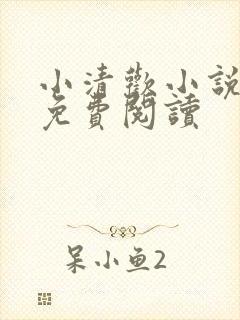 小清歡小說
免費閱讀
呆小鱼2